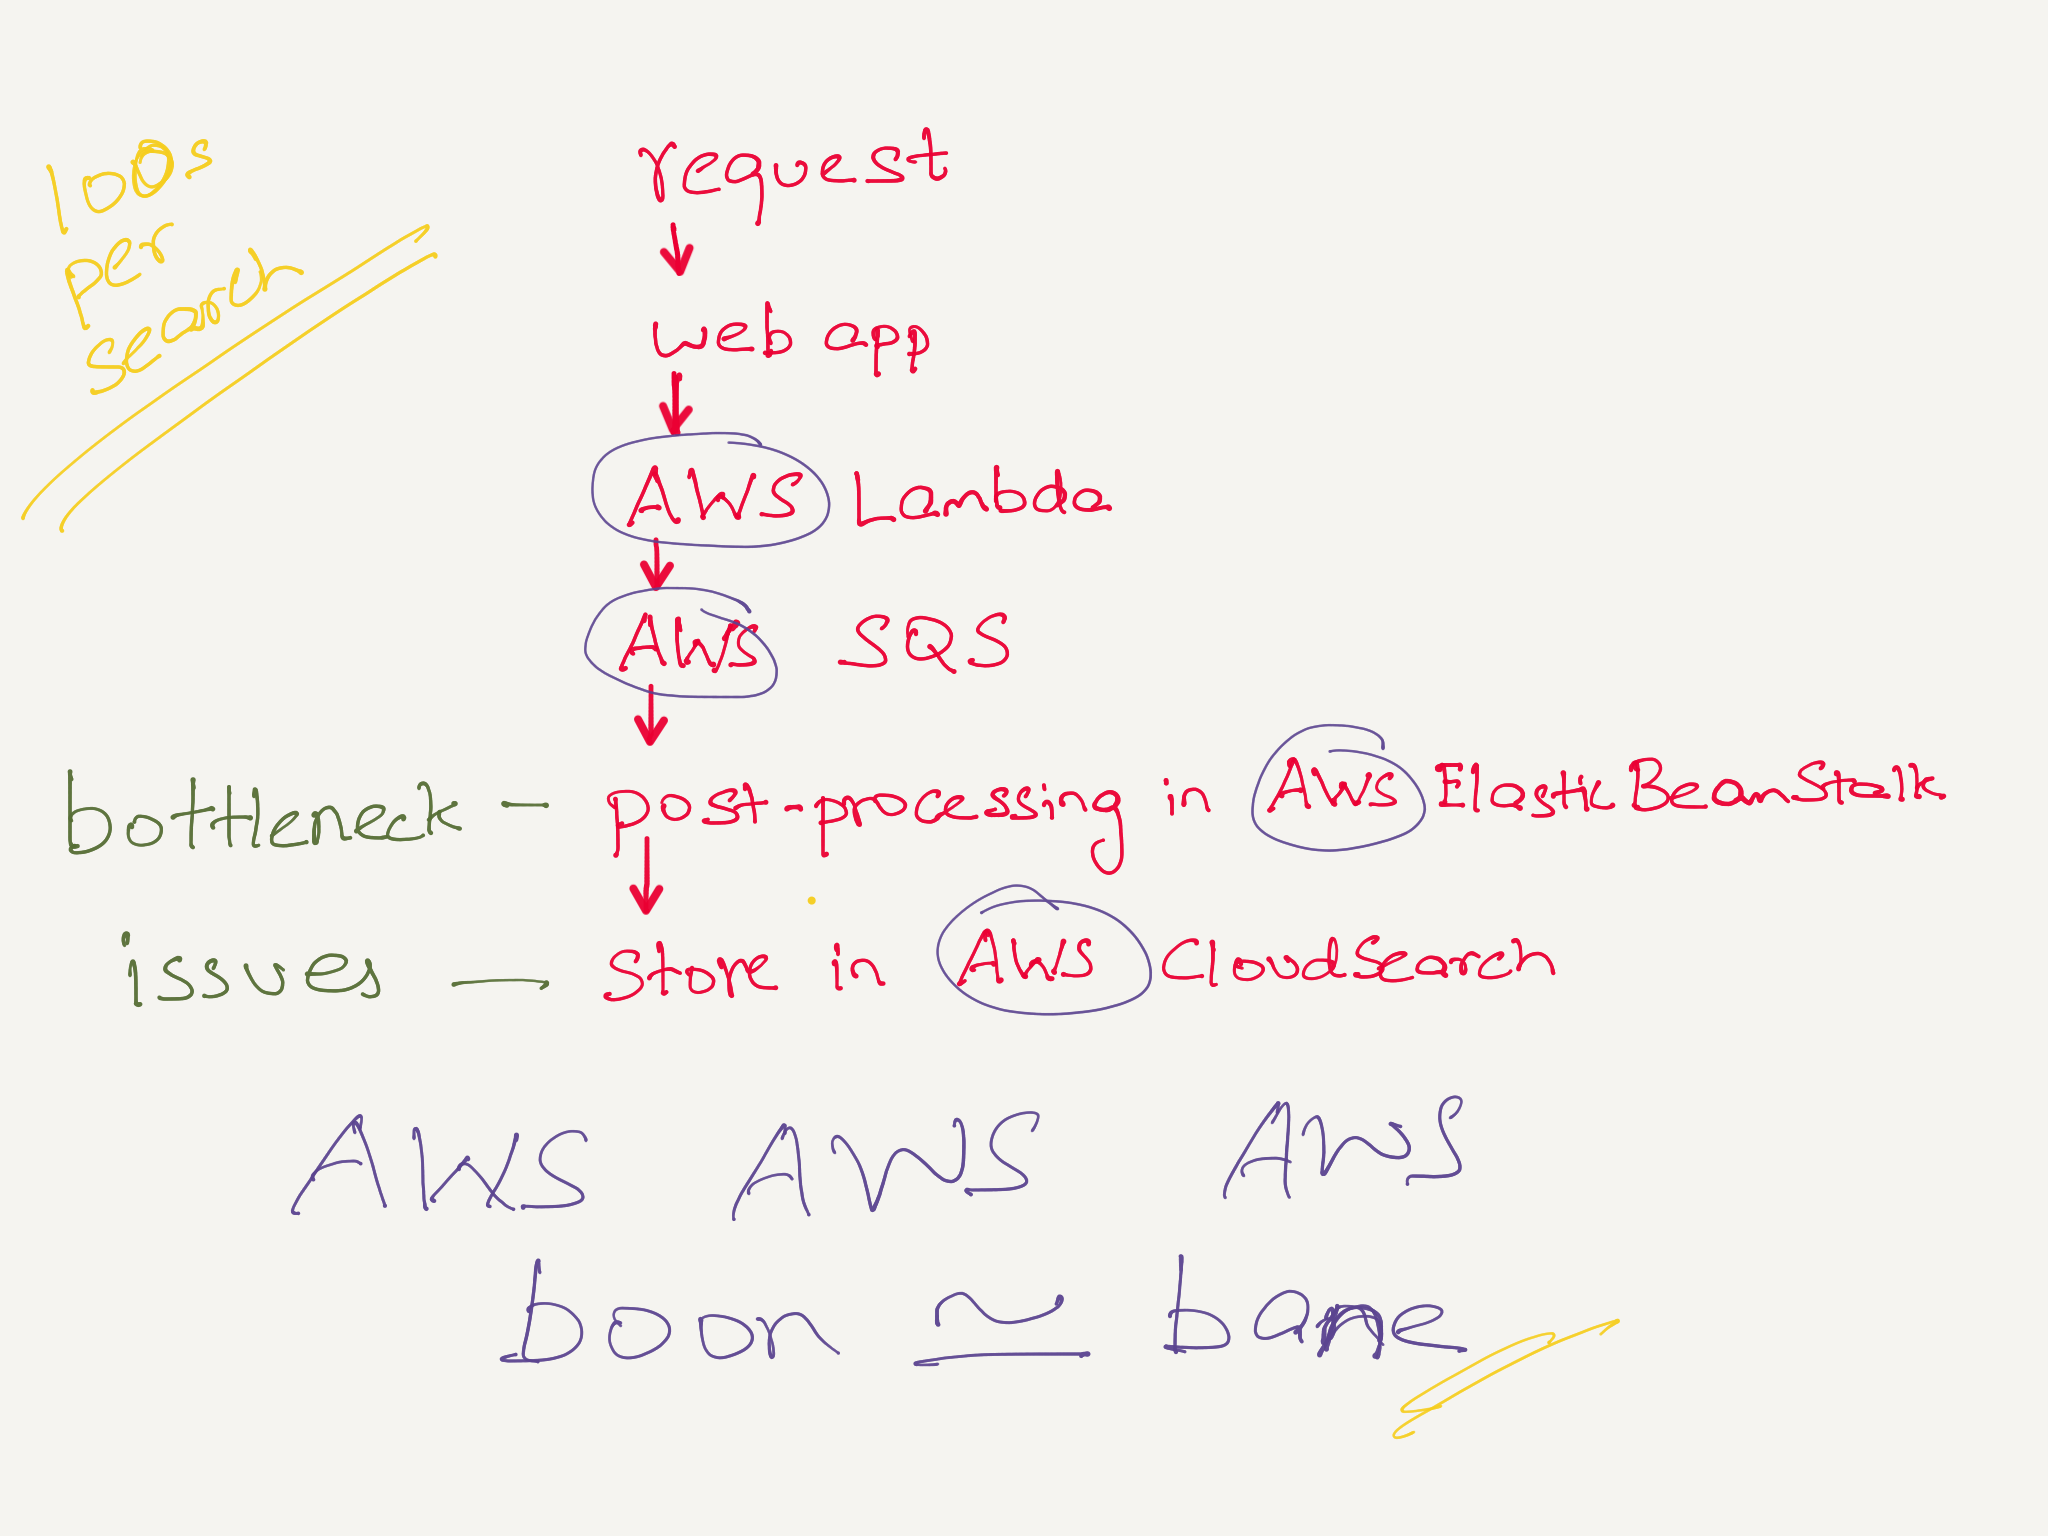 100s
per
search
request
web app
AWS Lambda
AWS SQS
bottleneck - post-processing in AWS ElasticBeanStalk
issues — Store in AWS CloudSearch
AWS AWS AWS
boon ≃ bane